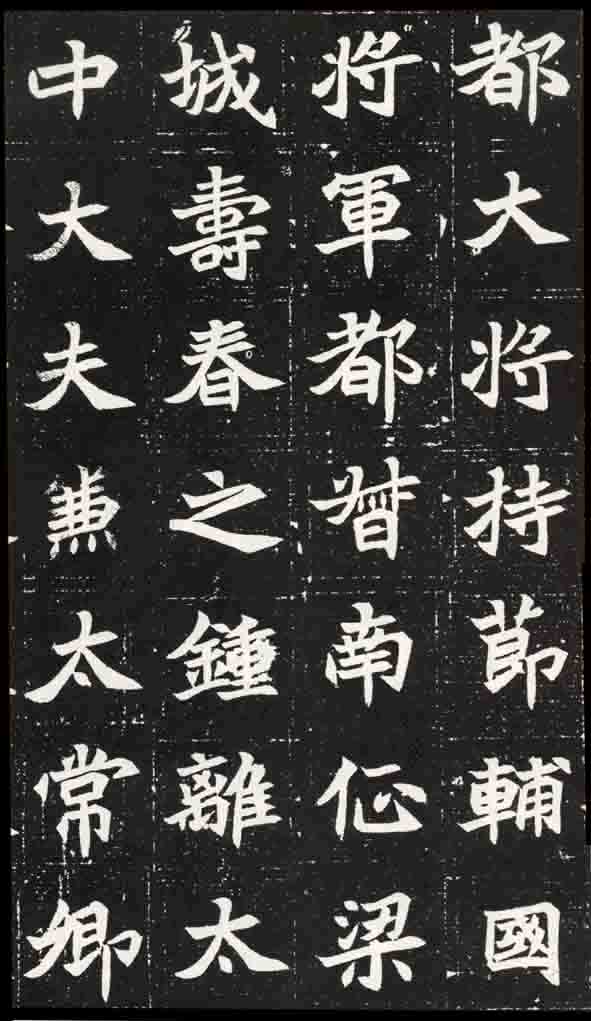 都大将持莭輔國
将軍都督南征梁
城壽春之鍾離太
中大夫兼太常卿